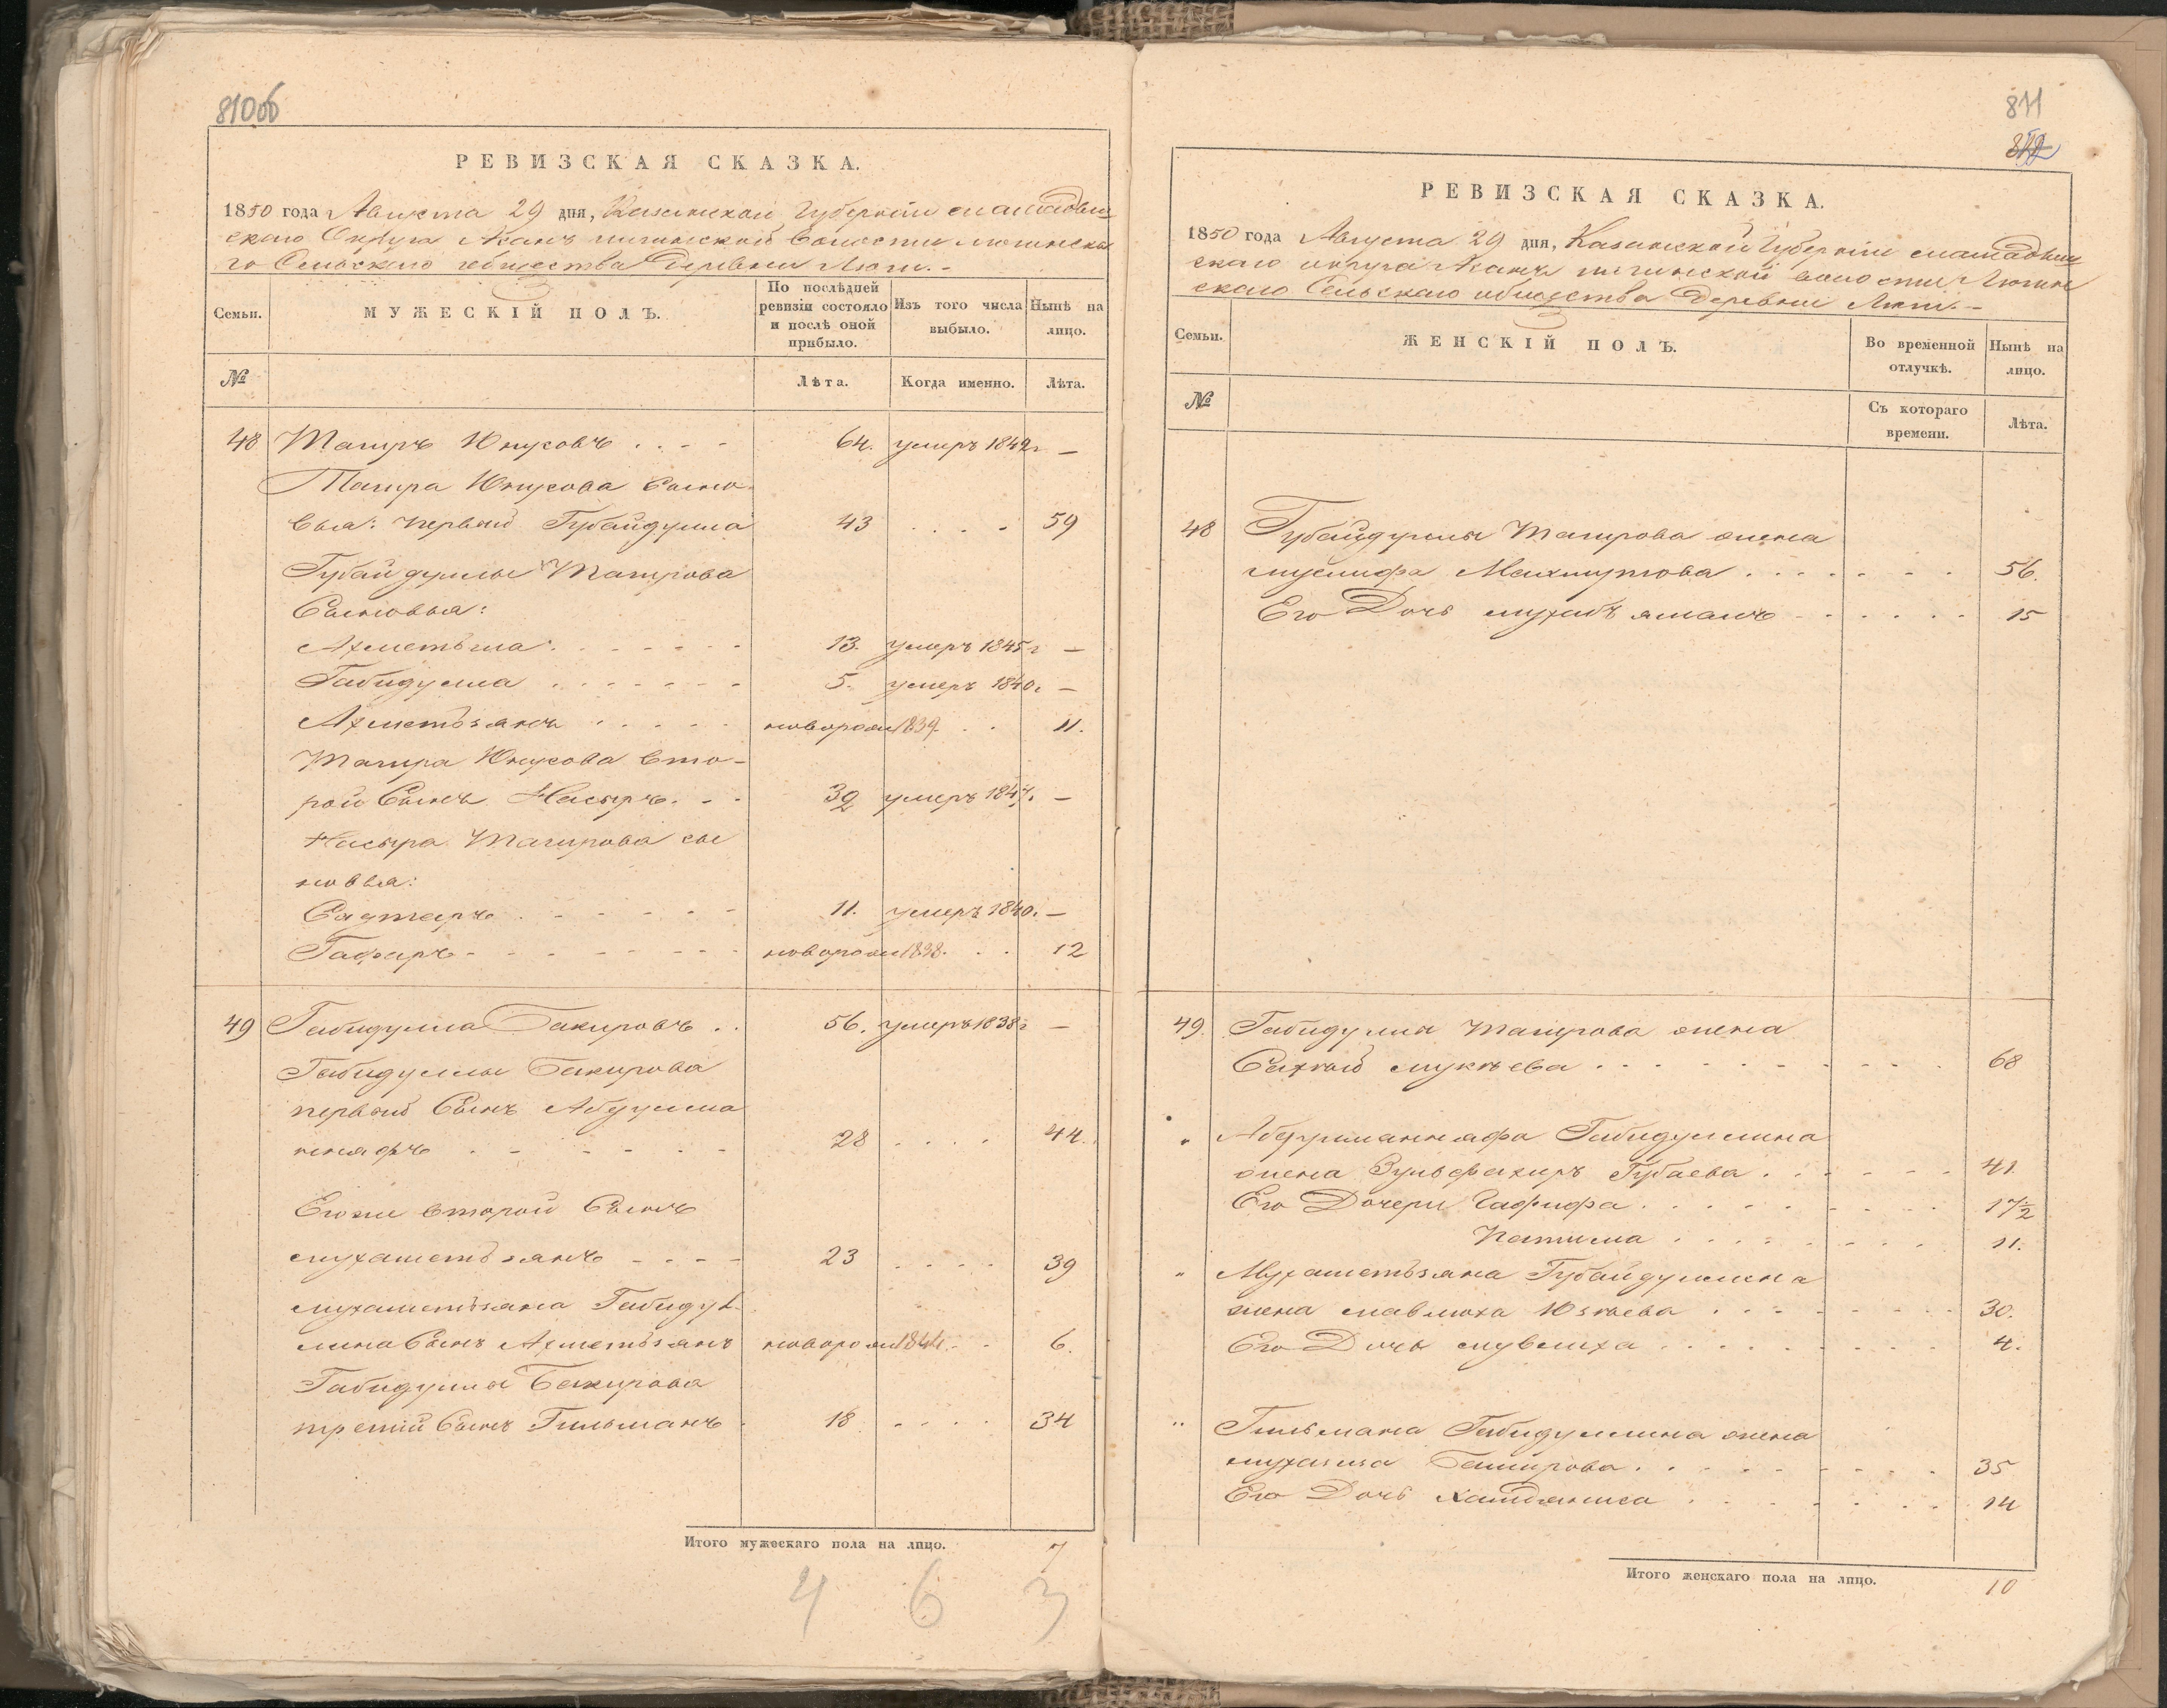 810об
РЕВИЗСКАЯ СКАЗКА.
1850 года Августа 29 дня, Казанской Губернiи мамадыш
скаго Округа Асанъ илгинской волости люгинска
го Сельскаго общества Деревни Люги.-
Семьи.
МУЖЕСКIЙ ПОЛЪ.
По послѣдней ревизiи состояло и послѣ оной прибыло.
Изъ того числа выбыло.
Нынѣ на лицо.
№
Лѣта.
Когда именно.
Лѣта.
48 Тагиръ Юнусовъ . . . - 64. умеръ 1849г —
Тагира Юнусова сыно-
вья: первый Губайдулла 43 . . . . 59
Губайдуллы Тагирова
Сыновья:
Ахметьша . . . . . . 13. умеръ 1845г —
Габидулла . . . . . . 5. умеръ 1840г —
Ахметьзянъ . . . . . новорож 1839. . . 11.
Тагира Юнусова вто-
рой Сынъ Насыръ. - - 39 умеръ 1847. —
Насыра Тагирова сы
новья:
Садтаръ . . . . . . 11. умеръ 1840. —
Гафаръ . . . . . . новорож 1838. . . 12
49 Габидулла Бакировъ . . 56. умеръ 1838г —
Габидуллы Бакирова
первый Сынъ Абдулма
ннафъ . . . . . . 28 . . . . 44.
Егоже второй Сынъ
мухаметьзянъ - - - - 23 . . . . 39
мухаметьзяна Габидул-
лина Сынъ Ахметьзянъ новорож 1844. - - 6.
Габидуллы Бакирова
третiй Сынъ Гильманъ . 18 . . . . 34
Итого мужескаго пола на лицо. 7
4 6 3
811
812
РЕВИЗСКАЯ СКАЗКА.
1850 года Августа 29 дня, Казанской Губернiи мамадыш
скаго округа Асанъ илгинской волости Люгин
скаго Сельскаго общества Деревни Люги.-
Семьи.
ЖЕНСКIЙ ПОЛЪ.
Во временной отлучкѣ.
Нынѣ на лицо.
№
Съ котораго времени.
Лѣта.
48 Губайдуллы Тагирова жена
муслифа Махмутова . . . . . . . 56.
Его Дочь мухибъ ямалъ . . . . . . 15
49. Габидуллы Тагирова жена
Сахный мукѣева . . . . . . . . . 68
" Абдулманнафа Габидуллина
жена Зульфахиръ Губаева . . . . . . 41.
Его Дочери Гафифа . . . . . . . . 17½
Патима . . . . . . . 11.
" Мухаметьзяна Губайдуллина
жена мавлюха Юзѣева . . . . . . . 30.
Его Дочь мувлиха . . . . . . . . 4.
" Гильмана Габидуллина жена
Баширова . . . . . . . . 35
Его Дочь . . . . . . . 14
Итого женскаго пола на лицо. 10